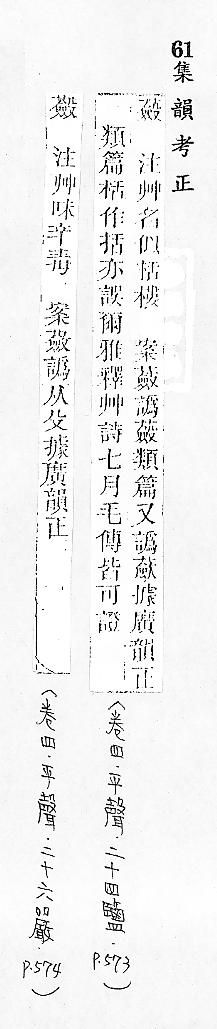 61集韻考正
蘞 注艸名似栝樓 案蘞譌蔹類篇又譌蘝據廣韻正
類篇栝作括亦誤爾雅釋艸詩七月毛傳皆可證
(卷四.平聲.二十四鹽.P.573)
蘞 注艸味辛毒 案蘞譌从攵據廣韻正
(卷四.平聲.二十六嚴.P.574)